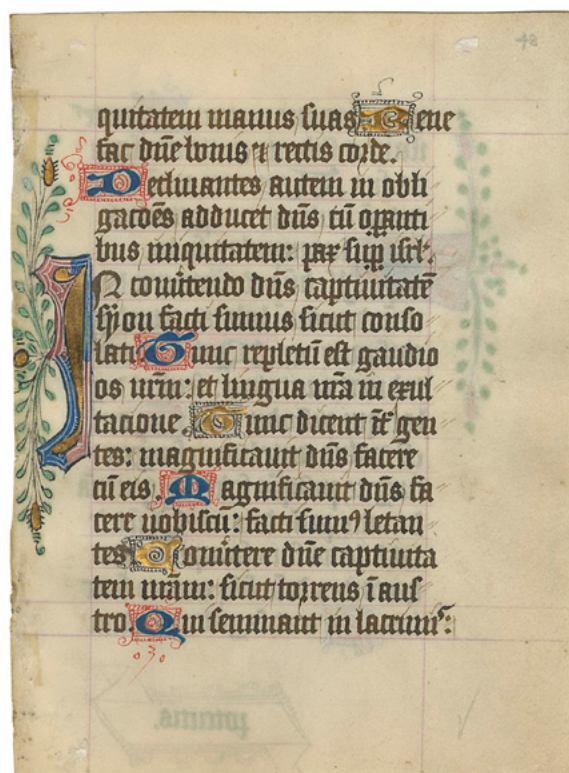 48
quitatem manus suas Bene
fac dñe bonis ⁊ rectis corde.
Declinantes autem in obli
gacões adducet dñs cũ oꝑanti
bus iniquitatem: pax suꝑ isrl'.
IN cõuertendo dñs captiuitatẽ
syon facti sumus sicut conso
lati Tunc repletũ est gaudio
os nrm̃: et lingua nrã in exul
tacione Tunc dicent ĩt̃ gen
tes: magnificauit dñs facere
cũ eis. Magnificauit dñs fa
cere nobiscũ: facti sumꝰ letan
tes Cõuertere dñe captiuita
tem nrãm: sicut torrens ĩ aus
tro. Qui seminant in lacrimis: